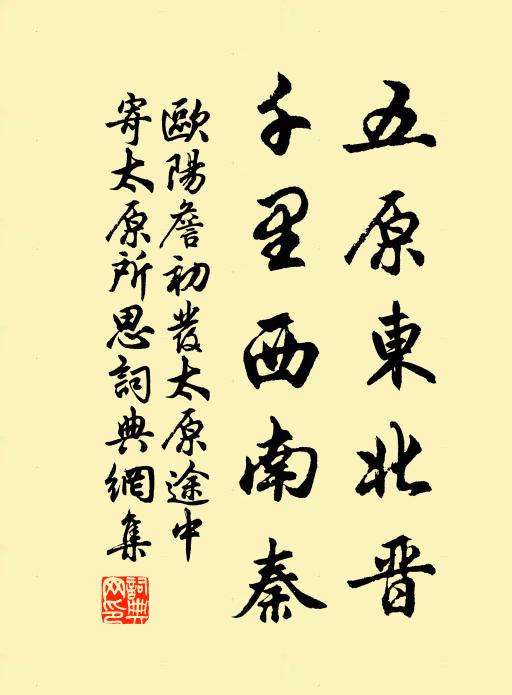 五原東北晋
千里西南秦
歐陽詹初發太原途中
寄太原所思詞典網集
詞典
网印